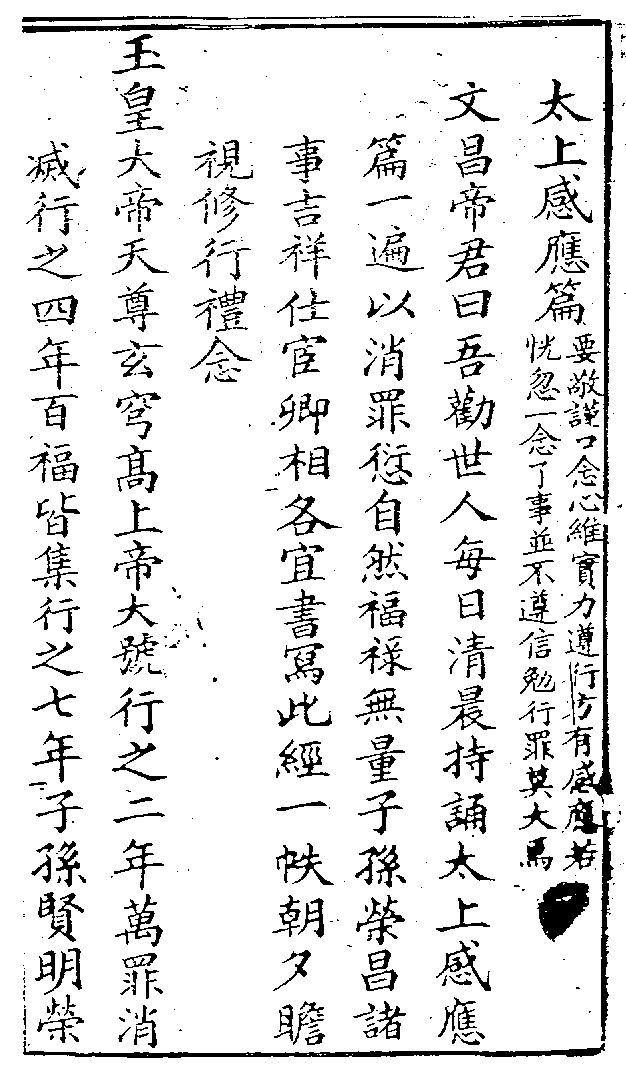 太上感應篇
要敬謹口念心維實力遵行方有感應若
恍忽一念了事並不遵信勉行罪莫大焉
文昌帝君曰吾勸世人每日清晨持誦太上感應
篇一遍以消罪愆自然福祿無量子孫榮昌諸
事吉祥仕宦卿相各宜書寫此經一帙朝夕瞻
視修行禮念
玉皇大帝天尊玄穹高上帝大號行之二年萬罪消
滅行之四年百福皆集行之七年子孫賢明榮